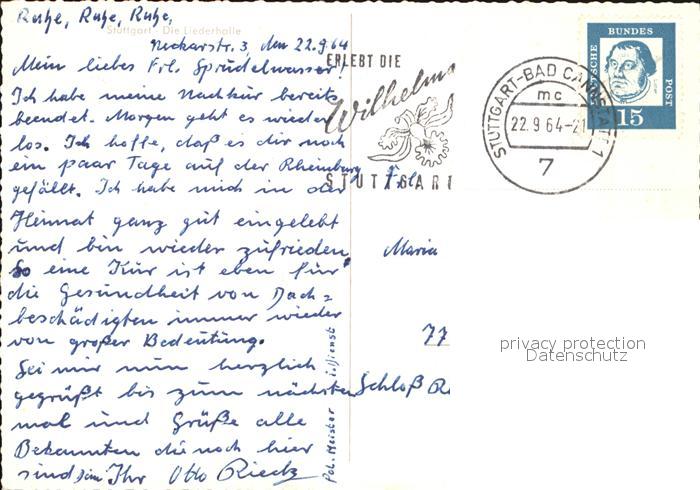 Ruhe, Ruhe, Ruhe,
Stuttgart - Die Liederhalle
Neckarstr. 3, den 22.9.64
Mein liebes Frl. Sprudelwasser!
Ich habe meine Nachkur bereits
beendet. Morgen geht es wieder
los. Ich hoffe, daß es dir noch
ein paar Tage auf der Rheinburg
gefällt. Ich habe mich in der
Heimat ganz gut eingelebt
und bin wieder zufrieden.
So eine Kur ist eben für
die Gesundheit von Dach=
beschädigten immer wieder
von großer Bedeutung.
Sei mir nun herzlich
gegrüßt bis zum nächsten
mal und Grüße alle
Bekannten die noch hier
sind Ihr Otto
Pol. Meister i. Dienst
ERLEBT DIE
Wilhelma
STUTTGART
STUTTGART-BAD CANNSTATT 1
mc
22.9.64-21
7
DEUTSCHE
BUNDES
POST
15
Frl.
Maria
77
Schloß R
privacy protection
Datenschutz